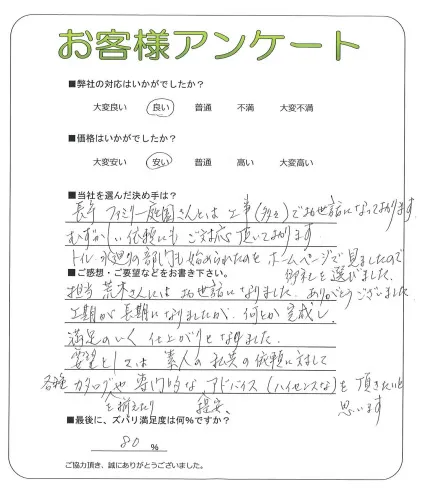 お客様アンケート
■弊社の対応はいかがでしたか？
大変良い　良い　普通　不満　大変不満
■価格はいかがでしたか？
大変安い　安い　普通　高い　大変高い
■当社を選んだ決め手は？
長年 ファミリー庭園さんとは 工事(多々)でお世話になっております
むずかしい依頼にも ご対応 頂いております
トイレ 水廻りの部門も始められたのを ホームページで 見ましたので
御社を選びました。
■ご感想・ご要望などをお書き下さい。
担当 荒木さんには お世話になりました。ありがとうございました
工期が 長期になりましたが、何とか 完成し
満足のいく 仕上がりと なりました。
要望としては 素人の私共の依頼に対して
各種 カタログや 専門的な アドバイス (ハイセンスな)を 頂きたいと
を揃えたり　提案、　思います
■最後に、ズバリ満足度は何％ですか？
80 ％
ご協力頂き、誠にありがとうございました。